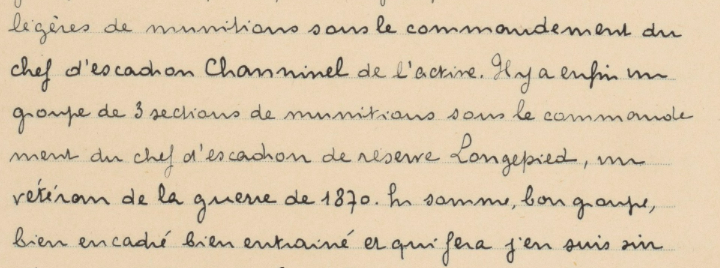 légères de munitions sous le commandement du
chef d'escadron Channinel de l'active. Il y a enfin un
groupe de 3 sections de munitions sous le commande
ment du chef d'escadron de réserve Longepied, un
vétéran de la guerre de 1870. En somme, bon groupe,
bien encadré bien entrainé et qui fera j'en suis sûr